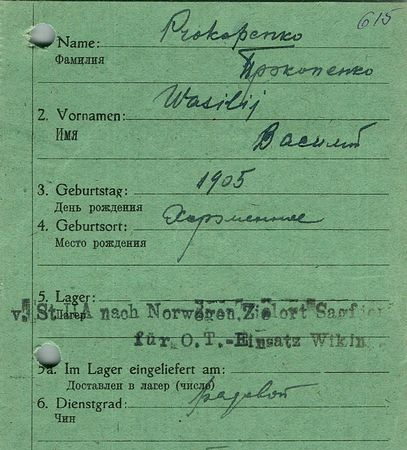 615
Name: Prokopenko
Фамилия Прокопенко
2. Vornamen: Wasilij
Имя Василий
3. Geburtstag: 1905
День рождения
4. Geburtsort:
Место рождения
5. Lager:
Лагерь
v. St. nach Norwegen, Zielort
für O.T.-Einsatz Wikin
5a. Im Lager eingeliefert am:
Доставлен в лагерь (число)
6. Dienstgrad: рядовой
Чин